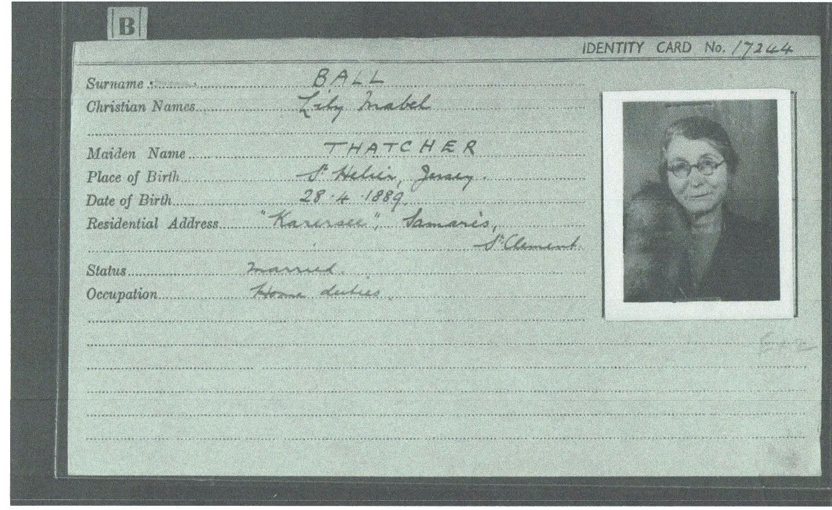 B
IDENTITY CARD No. 17244
Surname BALL
Christian Names Lily Mabel
Maiden Name THATCHER
Place of Birth St Helier, Jersey.
Date of Birth 28.4.1889.
Residential Address "Karersee", Samarès,
St Clement.
Status Married.
Occupation Home duties.